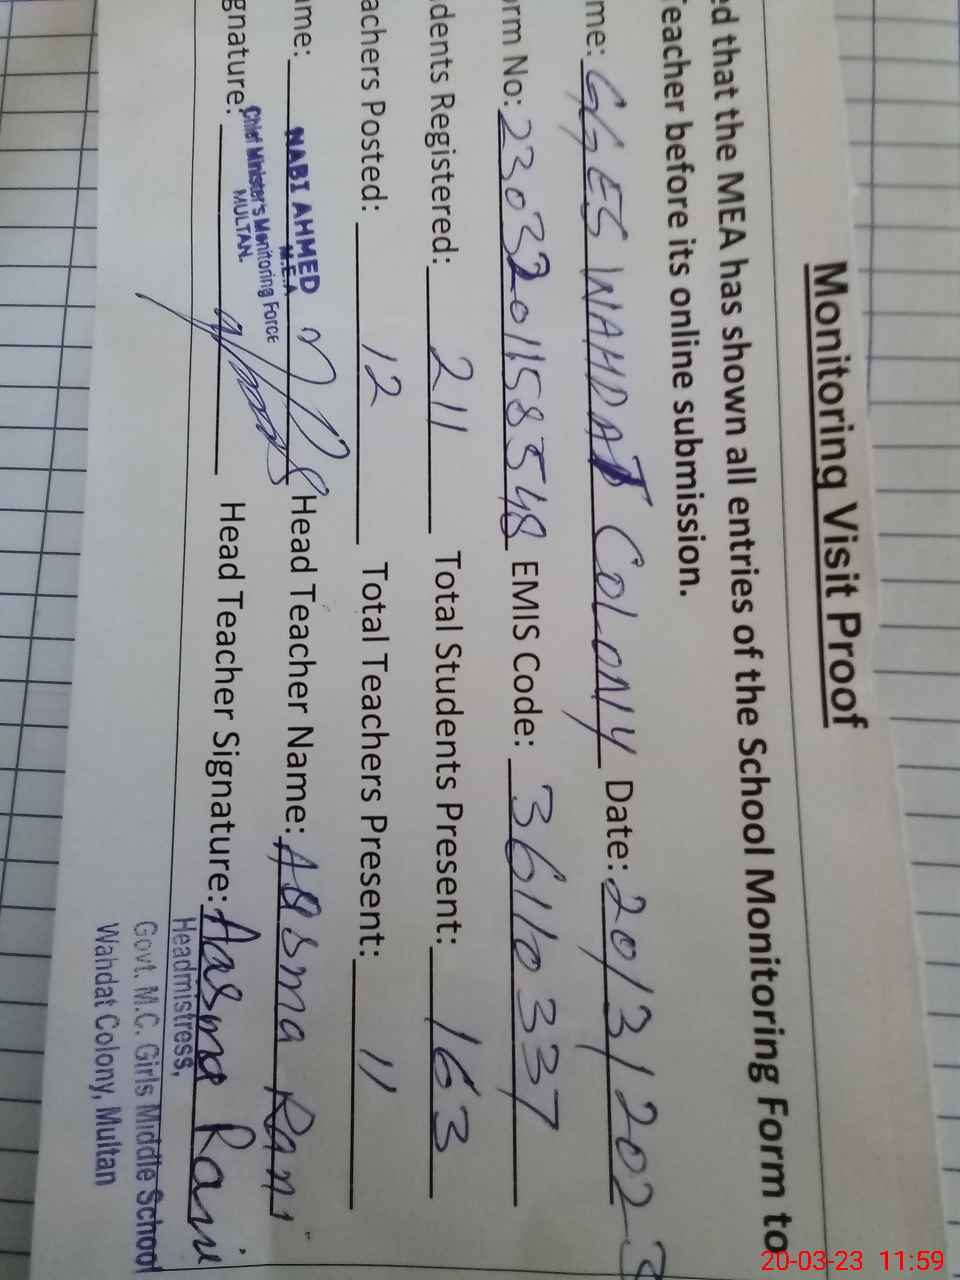 Monitoring Visit Proof
ed that the MEA has shown all entries of the School Monitoring Form to
Teacher before its online submission.
me: GGES WAHDAT COLONY Date: 20/3/2023
orm No: 23032011583548 EMIS Code: 36110337
dents Registered: 211 Total Students Present: 163
achers Posted: 12 Total Teachers Present: 11
ame: NABI AHMED Head Teacher Name: Aasma Rani
M.E.A
Chief Minister's Monitoring Force
MULTAN.
gnature: Head Teacher Signature: Aasma Rani
Headmistress,
Govt. M.C. Girls Middle School
Wahdat Colony, Multan
20-03-23 11:59